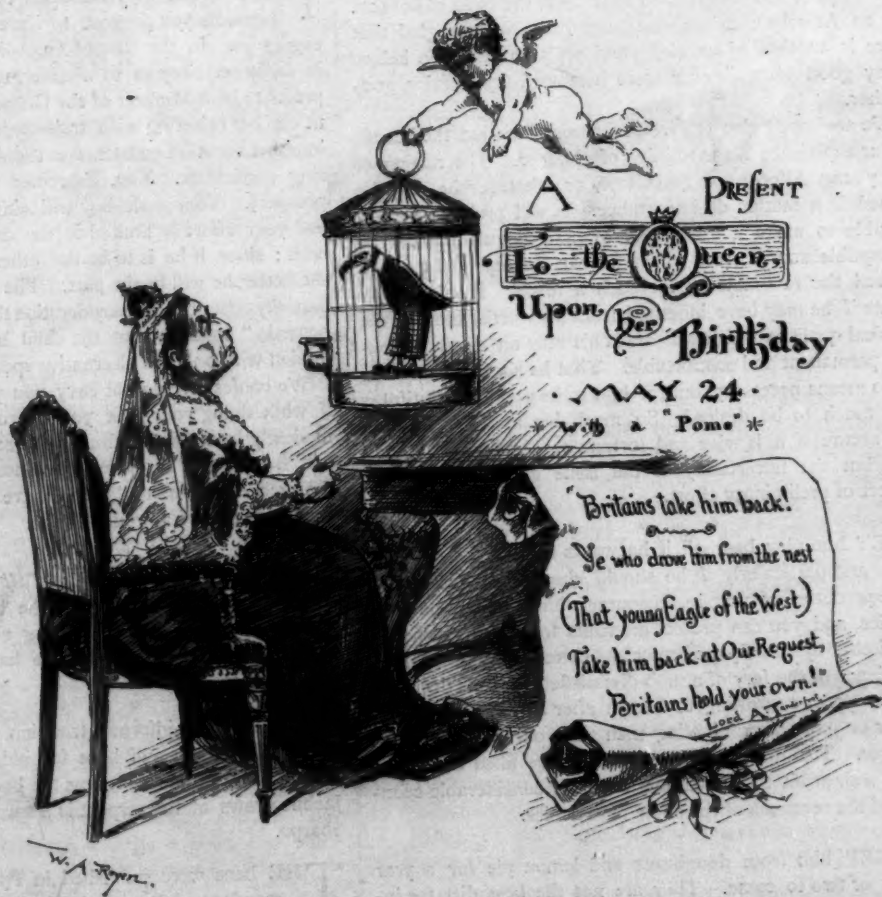 A Present
To the Queen,
Upon her
Birthday
· MAY 24 ·
* With a "Pome" *
"Britains take him back!
Ye who drove him from the nest
(That young Eagle of the West)
Take him back at Our Request,
Britains hold your own!"
Lord A. Tenderfoot.
W. A. Rogers.